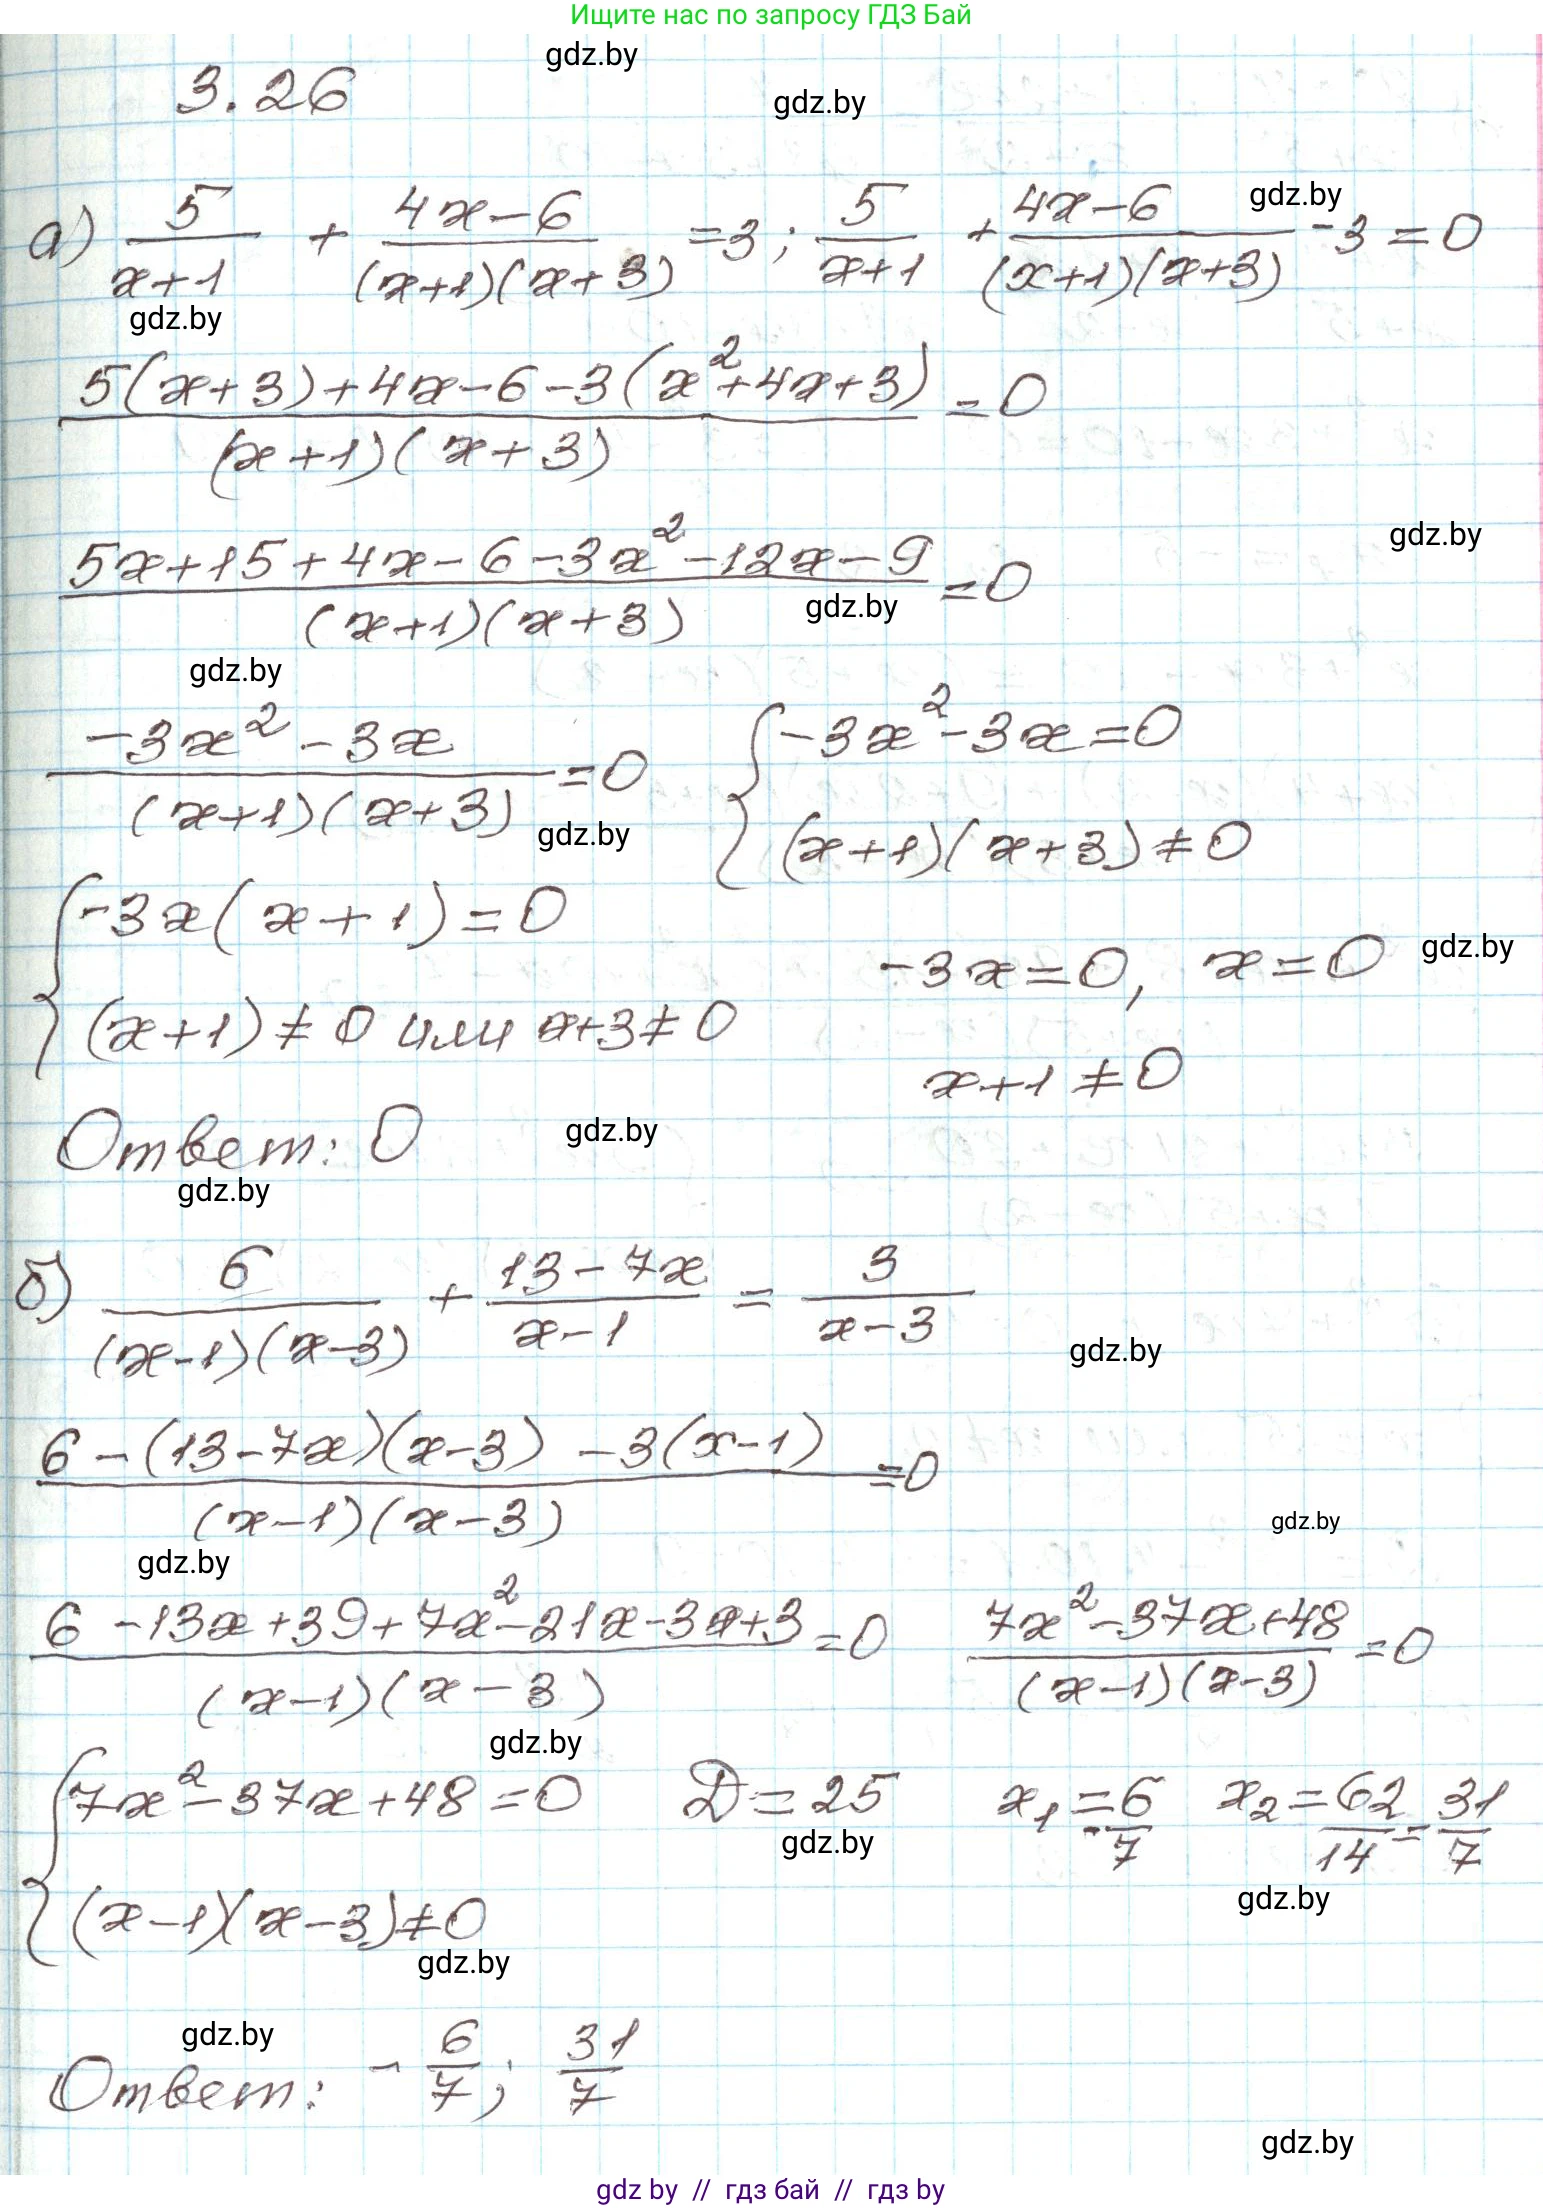 Ищите нас по запросу ГДЗ Бай
gdz.by
3.26
gdz.by
gdz.by
а) 5/(x+1) + (4x-6)/((x+1)(x+3)) =3; 5/(x+1) + (4x-6)/((x+1)(x+3)) -3=0
gdz.by
(5(x+3)+4x-6-3(x²+4x+3))/((x+1)(x+3)) =0
gdz.by
(5x+15+4x-6-3x²-12x-9)/((x+1)(x+3)) =0
gdz.by
gdz.by
(-3x²-3x)/((x+1)(x+3)) =0 { -3x²-3x=0
(x+1)(x+3)≠0
gdz.by
{ -3x(x+1)=0
-3x=0, x=0
gdz.by
(x+1)≠0 или x+3≠0
x+1≠0
Ответ: 0
gdz.by
gdz.by
б) 6/((x-1)(x-3)) + (13-7x)/(x-1) = 3/(x-3)
gdz.by
(6-(13-7x)(x-3)-3(x-1))/((x-1)(x-3)) =0
gdz.by
gdz.by
(6-13x+39+7x²-21x-3x+3)/((x-1)(x-3)) =0 (7x²-37x+48)/((x-1)(x-3)) =0
gdz.by
{ 7x²-37x+48=0 D=25 x₁=-6/7 x₂=62/14=31/7
gdz.by
gdz.by
(x-1)(x-3)≠0
gdz.by
gdz.by
Ответ: -6/7; 31/7
gdz.by
gdz by // гдз бай // гдз by